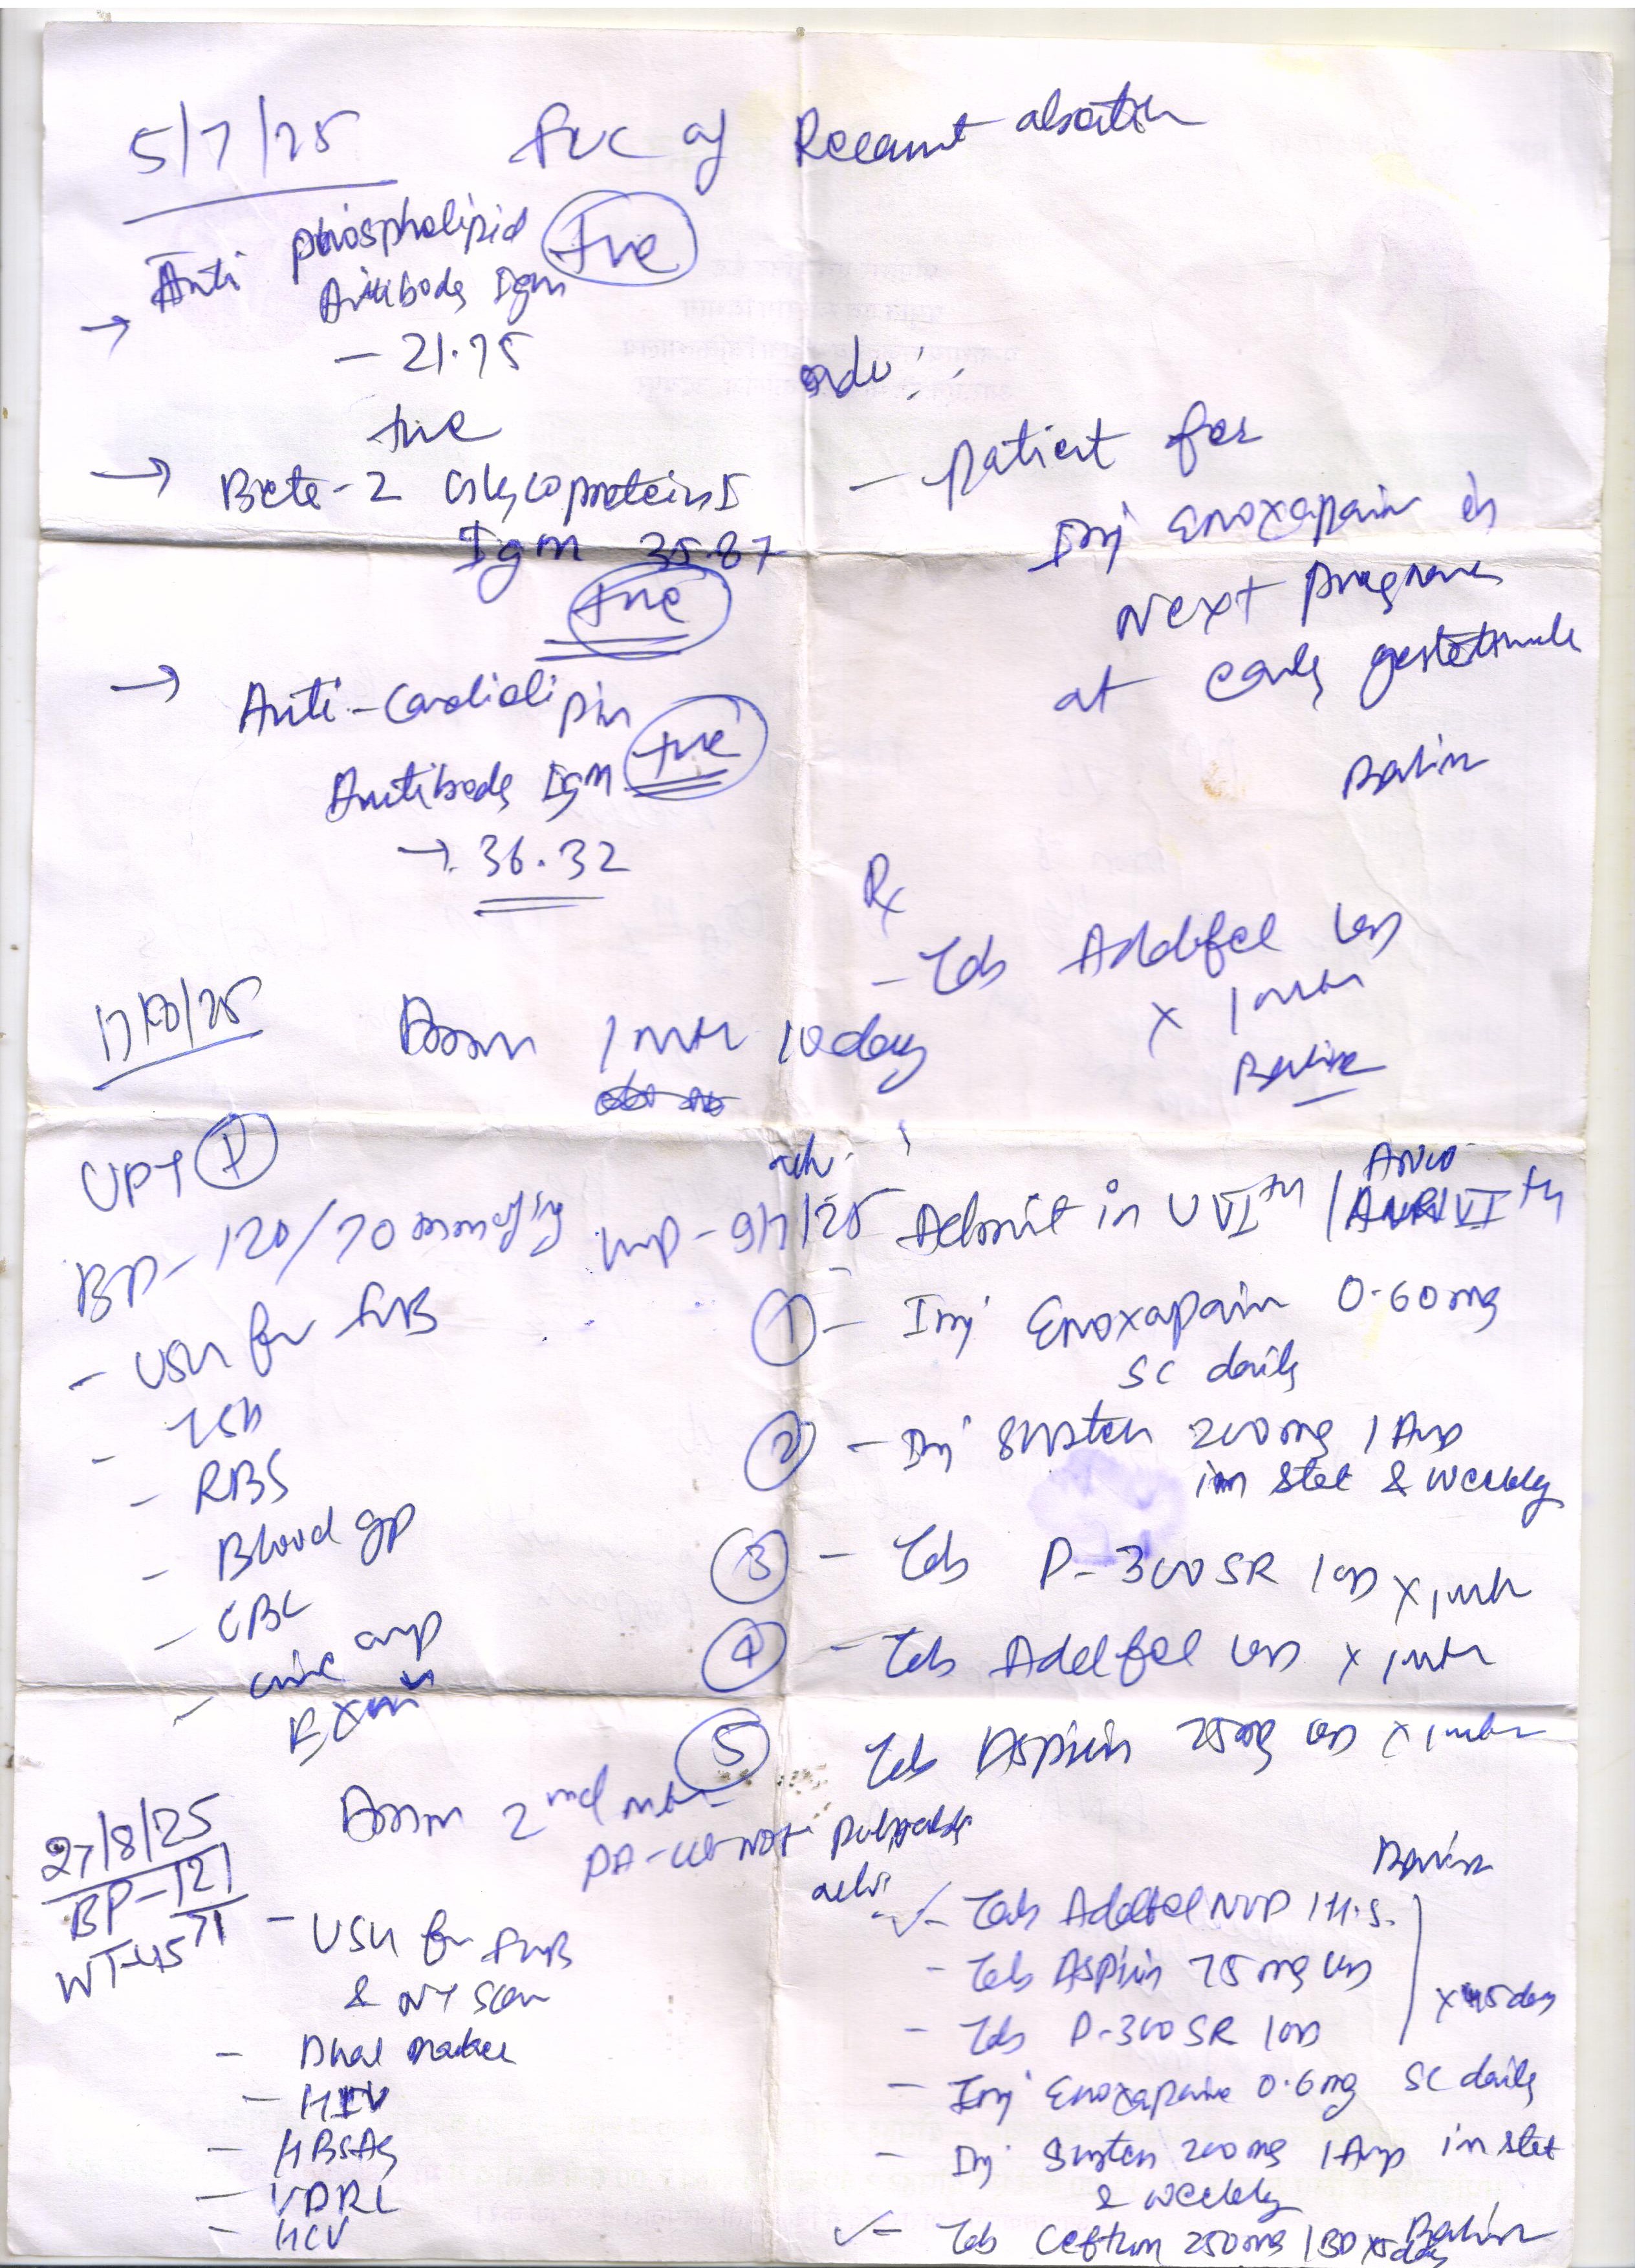 5/7/25
of Recurrent abortion
Anti phospholipid +ve
Antibody Igm
- 21.75
+ve
→ Beta-2 Glycoprotein I
Igm 35.87
+ve
→ Anti-Cardiolipin
Antibody Igm +ve
→ 36.32
- patient for
Inj Enoxaparin in
Next pregnancy
at early gestational
Rx
- Tab Addfol OD
x 1 mth
/25
1 mth 10 day
UPT +
BP - 120/70 mmofHg
LMP - 9/7/25
- USG for FWB
- TSH
- RBS
- Blood gp
- CBC
- Urine
adv.
Admit in U VI th / VI th
① - Inj Enoxaparin 0.60 mg
SC daily
② - Inj Susten 200mg 1 Amp
im stat & weekly
③ - Tab P-300 SR 1 OD x 1 mth
④ - Tab Addfol OD x 1 mth
⑤ Tab Aspirin 75mg OD x 1 mth
27/8/25
BP - 121/71
WT-45
2nd mth
PA - Ut-Not palpable
- USG for FWB
& NT scan
- Dual marker
- HIV
- HBsAg
- VDRL
- HCV
adv
- Tab Addfol NVP 1 H.S.
- Tab Aspirin 75 mg OD
- Tab P-300 SR 1 OD
x 45 day
- Inj Enoxaparin 0.6 mg SC daily
- Inj Susten 200 mg 1 Amp im stat
& weekly
- Tab Ceftum 250mg 1 BD x 5 day